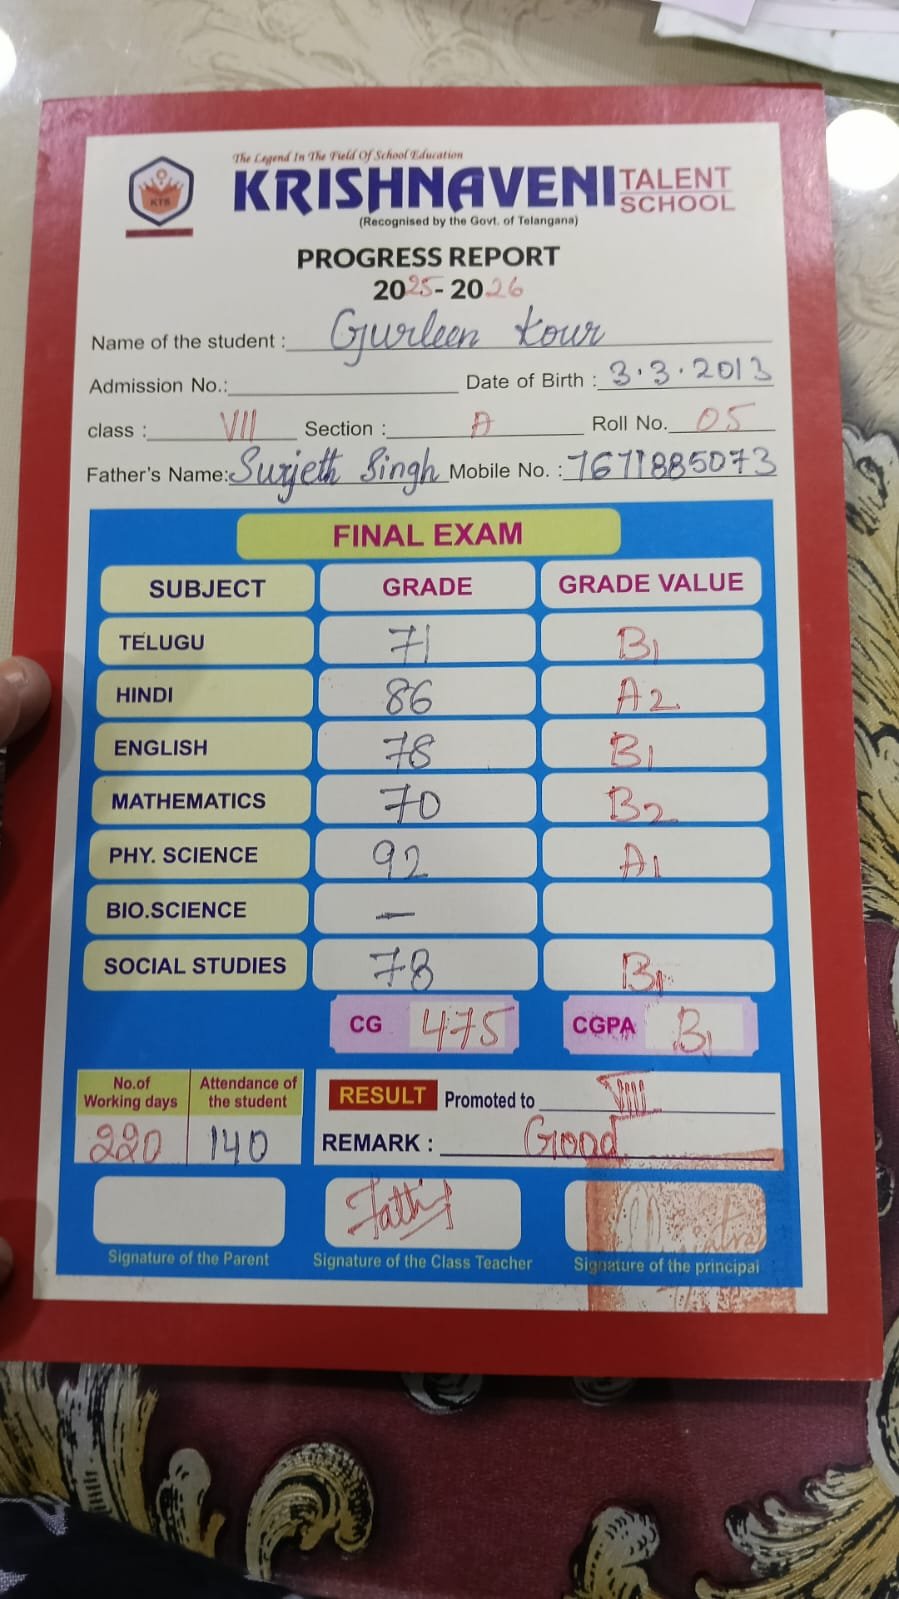 The Legend In The Field Of School Education
KTS
KRISHNAVENI TALENT SCHOOL
(Recognised by the Govt. of Telangana)
PROGRESS REPORT
2025-2026
Name of the student : Gurleen Kour
Admission No.: Date of Birth : 3.3.2013
class : VII Section : A Roll No. 05
Father's Name: Surjeth Singh Mobile No. : 7671885073
FINAL EXAM
SUBJECT GRADE GRADE VALUE
TELUGU 71 B1
HINDI 86 A2
ENGLISH 78 B1
MATHEMATICS 70 B2
PHY. SCIENCE 92 A1
BIO.SCIENCE —
SOCIAL STUDIES 78 B1
CG 475 CGPA B1
No.of Working days Attendance of the student
220 140
RESULT Promoted to VIII
REMARK : Good
Signature of the Parent Signature of the Class Teacher Signature of the principal